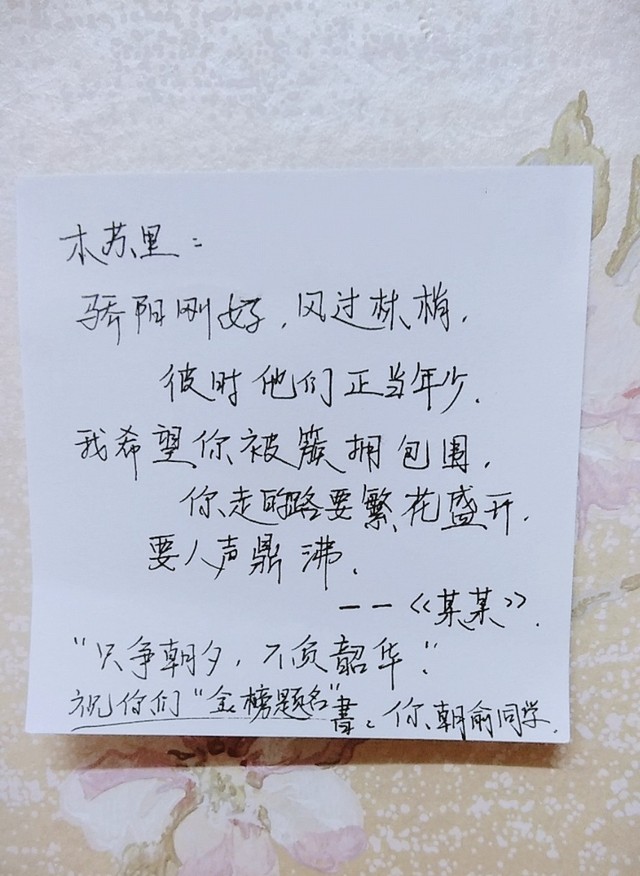 木苏里：
骄阳刚好，风过林梢，
彼时他们正当年少.
我希望你被簇拥包围，
你走的路要繁花盛开，
要人声鼎沸.
——《某某》.
“只争朝夕，不负韶华”.
祝你们“金榜题名”書、你、朝俞同学.